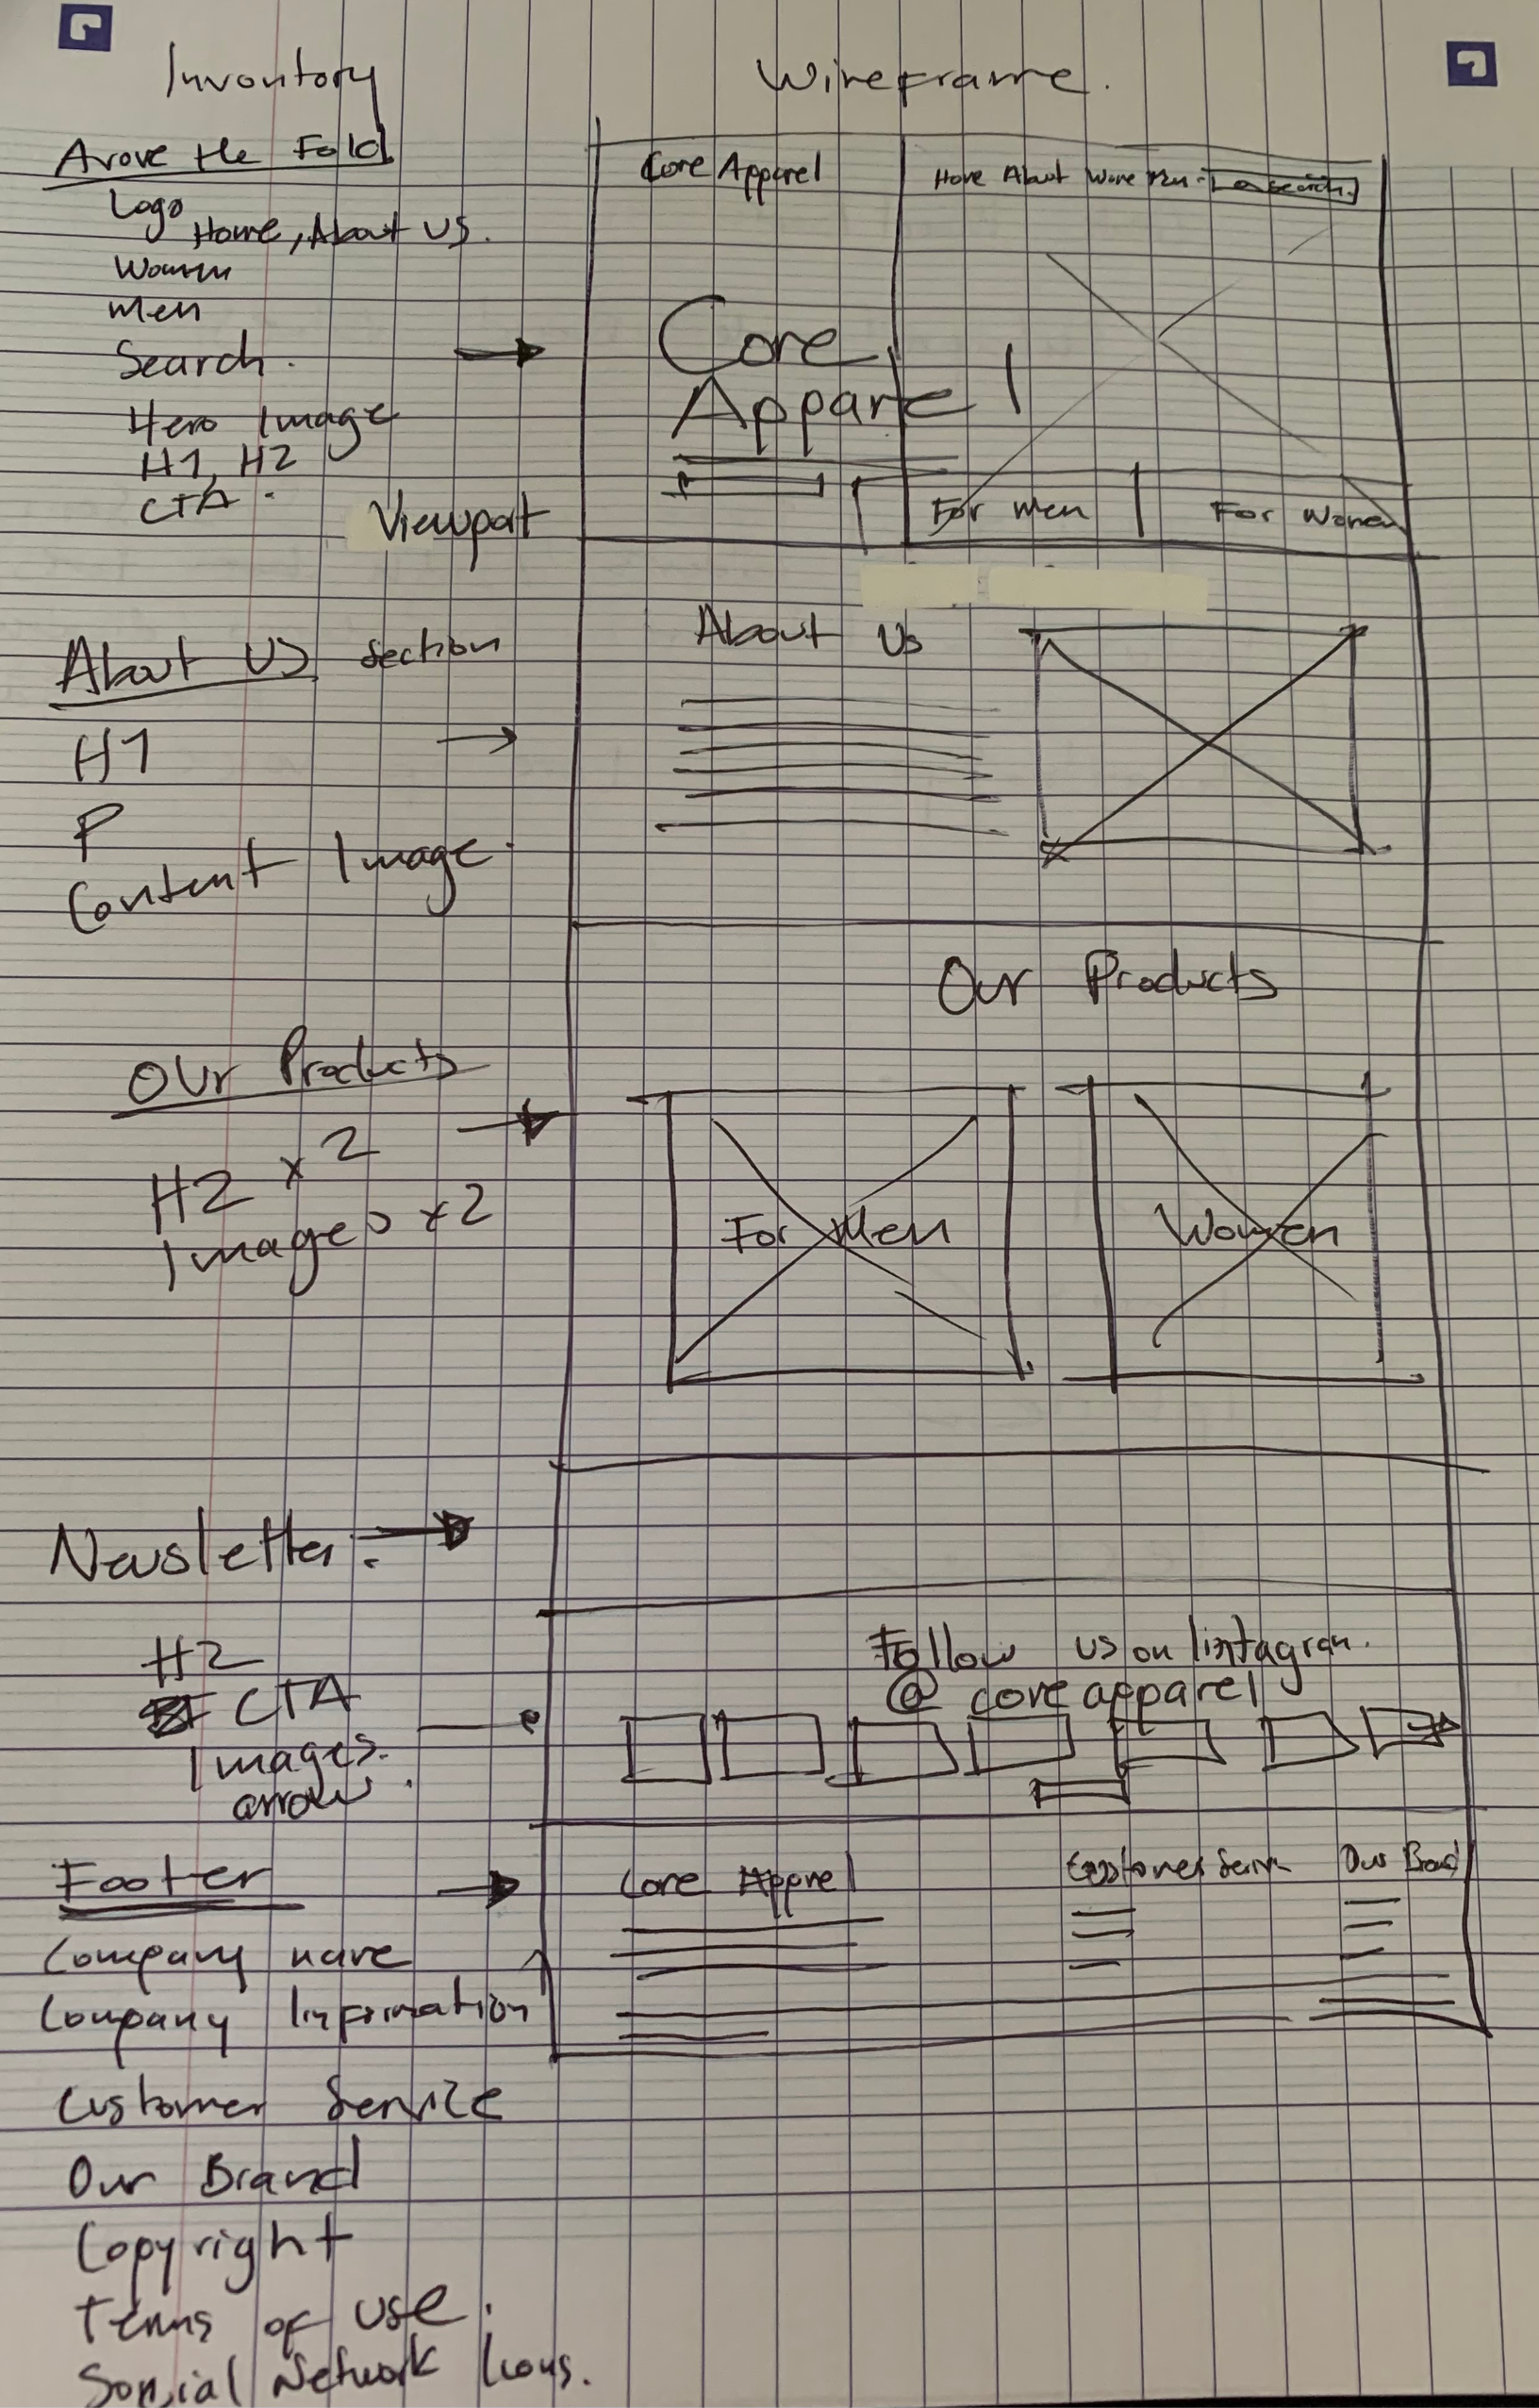 Inventory
Wireframe.
Avove the Fold
Logo
Home, About US.
Women
Men
Search.
Hero Image
H1, H2
CTA.
Viewport
Core Apparel
Home About Search.
Core
Apparel
For Men
For Women
About US Section
H1
P
Content Image.
About Us
Our Products
Our Products
H2 x 2
Images x2
For Men
Women
Newsletter.
H2
CTA
Images.
arrow.
Follow us on
@ core apparel
Footer
Company name
Company Information
Customer Service
Our Brand
Copyright
Terms of use.
Network
Core
Our Brand